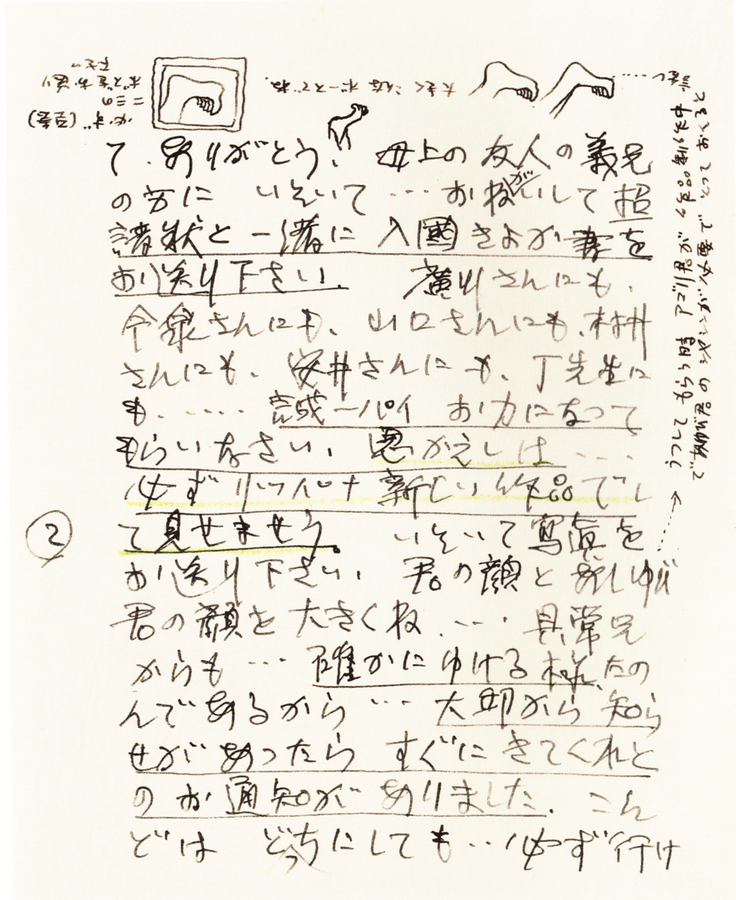 大きく こんな ポーズでね.
必ず (至急)
この
ポーズをお送り
下さい
て、ありがとう、 母上の友人の義兄
の方に いそいで … お願いして 招
請状と一緒に 入國きよか書を
お送り下さい. 廣川さんにも、
今泉さんにも、山口さんにも、木村
さんにも、安井さんにも、丁先生に
も、..... 誠一パイ お力になって
もらいなさい、 恩がえしは ....
必ず リッパナ 新しい作品でし
て見せませう. いそいで寫眞を
お送り下さい、 君の顔と あしゆび
君の顔を大きくね.… 具常兄
からも … 確かにゆける様.たの
んであるから … 大邱から 知ら
せがあったら すぐに きてくれと
のお通知がありました. こん
どは どっちにしても … 必ず行け
2